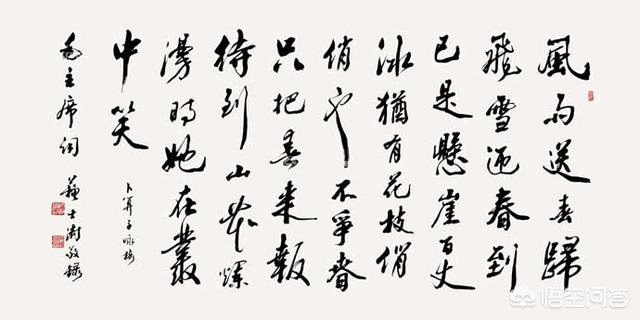 風雨送春歸
飛雪迎春到
已是懸崖百丈
冰猶有花枝俏
俏也不爭春
只把春來報
待到山花爛
漫時她在叢
中笑
卜算子咏梅
毛主席詞 蘇士澍敬録
悟空问答